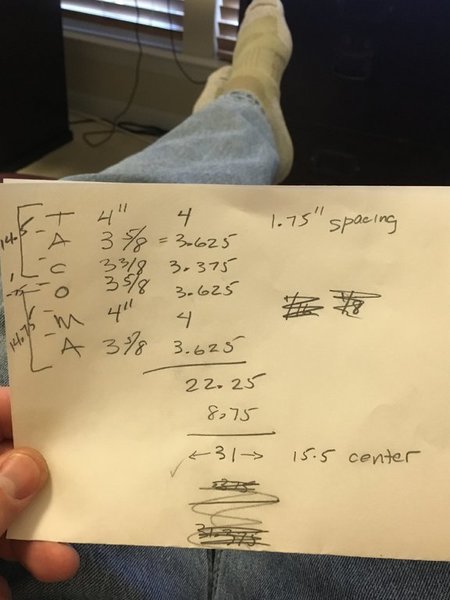 T 4" 4 1.75" spacing
A 3 5/8 = 3.625
C 3 3/8 3.375
O 3 5/8 3.625
M 4" 4
A 3 5/8 3.625
22.25
8.75
←31→ 15.5 center
14.5
14.75